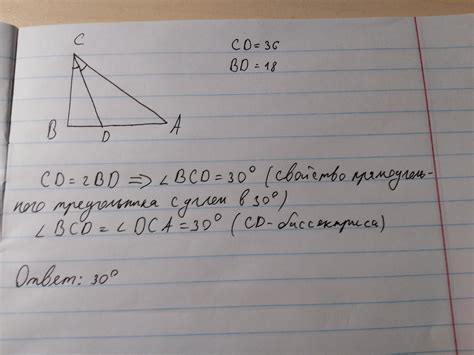 C
CD = 36
BD = 18
B D A
CD = 2BD ⟹ ∠BCD = 30° (свойство прямоуголь-
ного треугольника с углом в 30°)
∠BCD = ∠DCA = 30° (CD - биссектриса)
Ответ: 30°